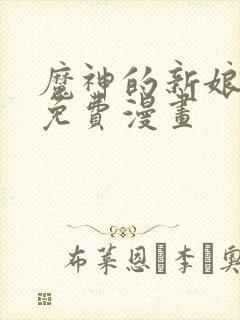 魔神的新娘
免費漫畫
布萊恩 李 奧